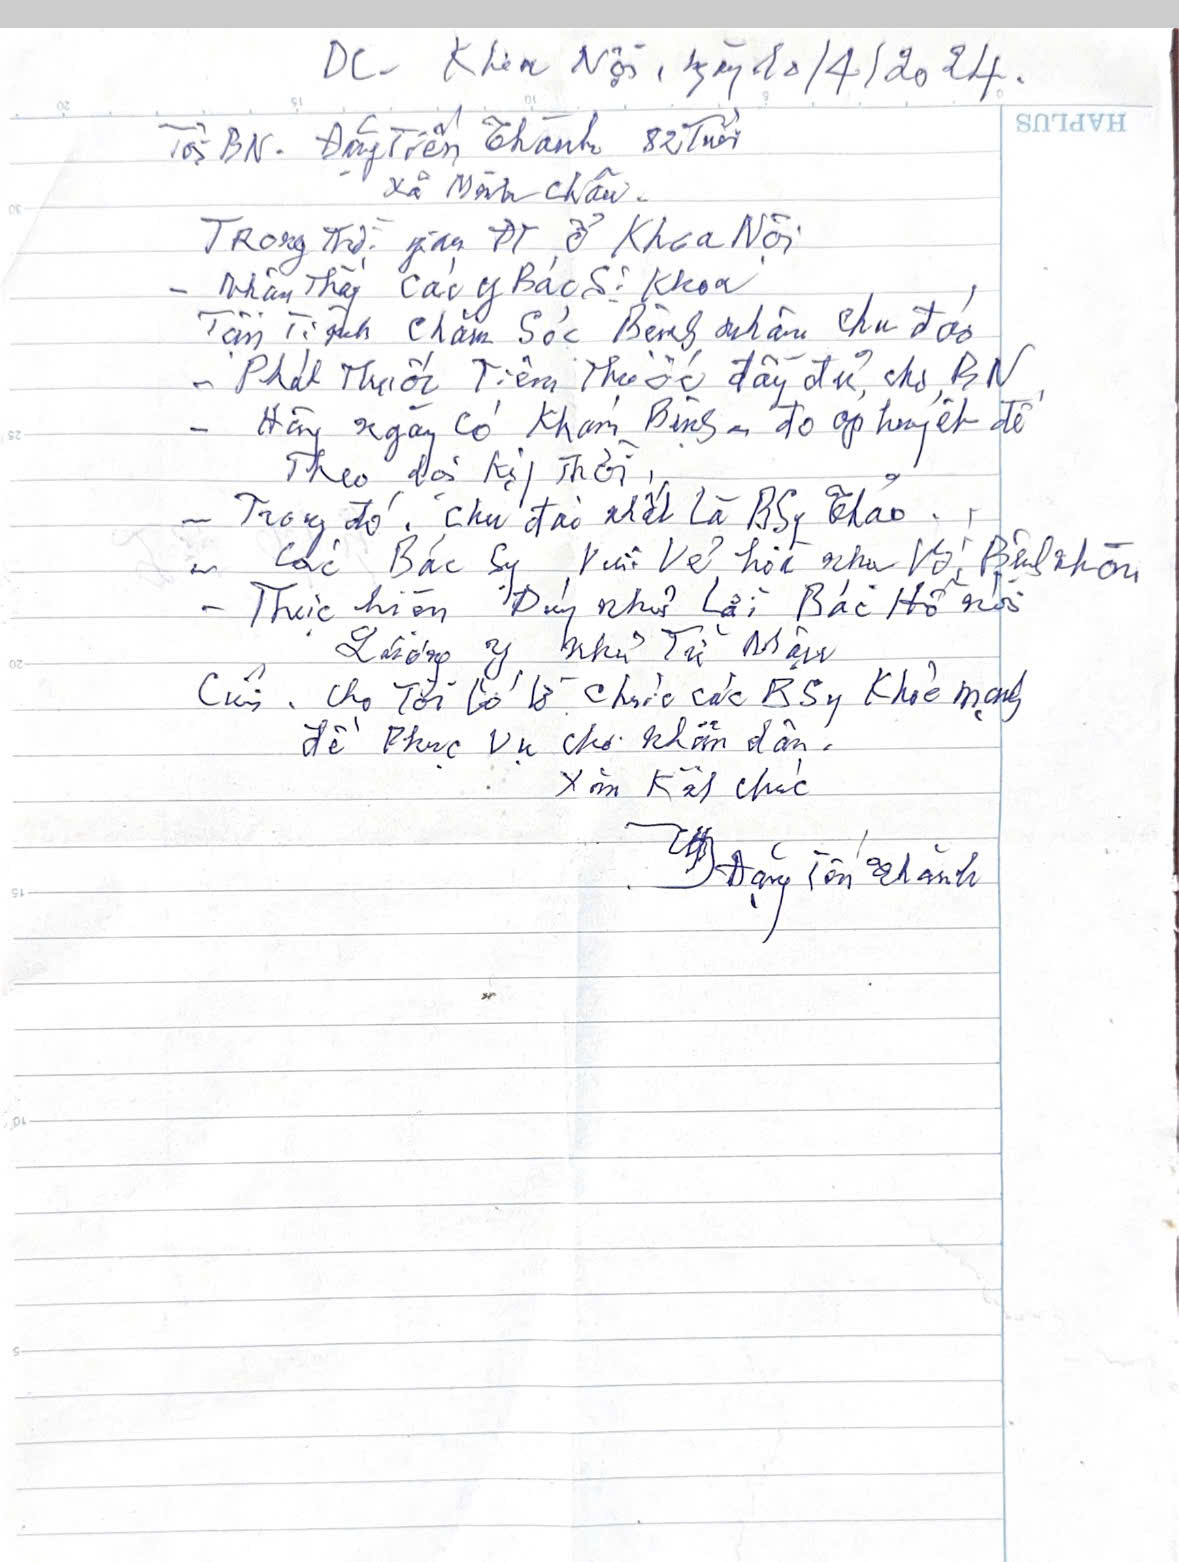 DC- Khoa Nội, ngày 10/4/2024.
HAPLUS
Tôi BN. Đặng Tiến Thành 82 Tuổi
xã Minh Châu.
Trong thời gian ĐT ở Khoa Nội
- Nhận thấy các y Bác Sĩ Khoa
Tận Tình chăm Sóc Bệnh nhân chu đáo
- Phát Thuốc Tiêm Thuốc đầy đủ, cho BN
- Hàng ngày có Khám Bệnh - đo áp huyết để
Theo dõi kịp thời,
- Trong đó, chu đáo nhất là BSỹ Thảo.
- Các Bác Sỹ Vui Vẻ hòa nhã Với Bệnh nhân
- Thực hiện Đúng như Lời Bác Hồ nói
Lương y như Từ Mẫu
Cuối. cho Tôi chúc các BSỹ Khỏe mạnh
để Phục Vụ cho nhân dân.
Xin Kính chúc
Đặng Tiến Thành